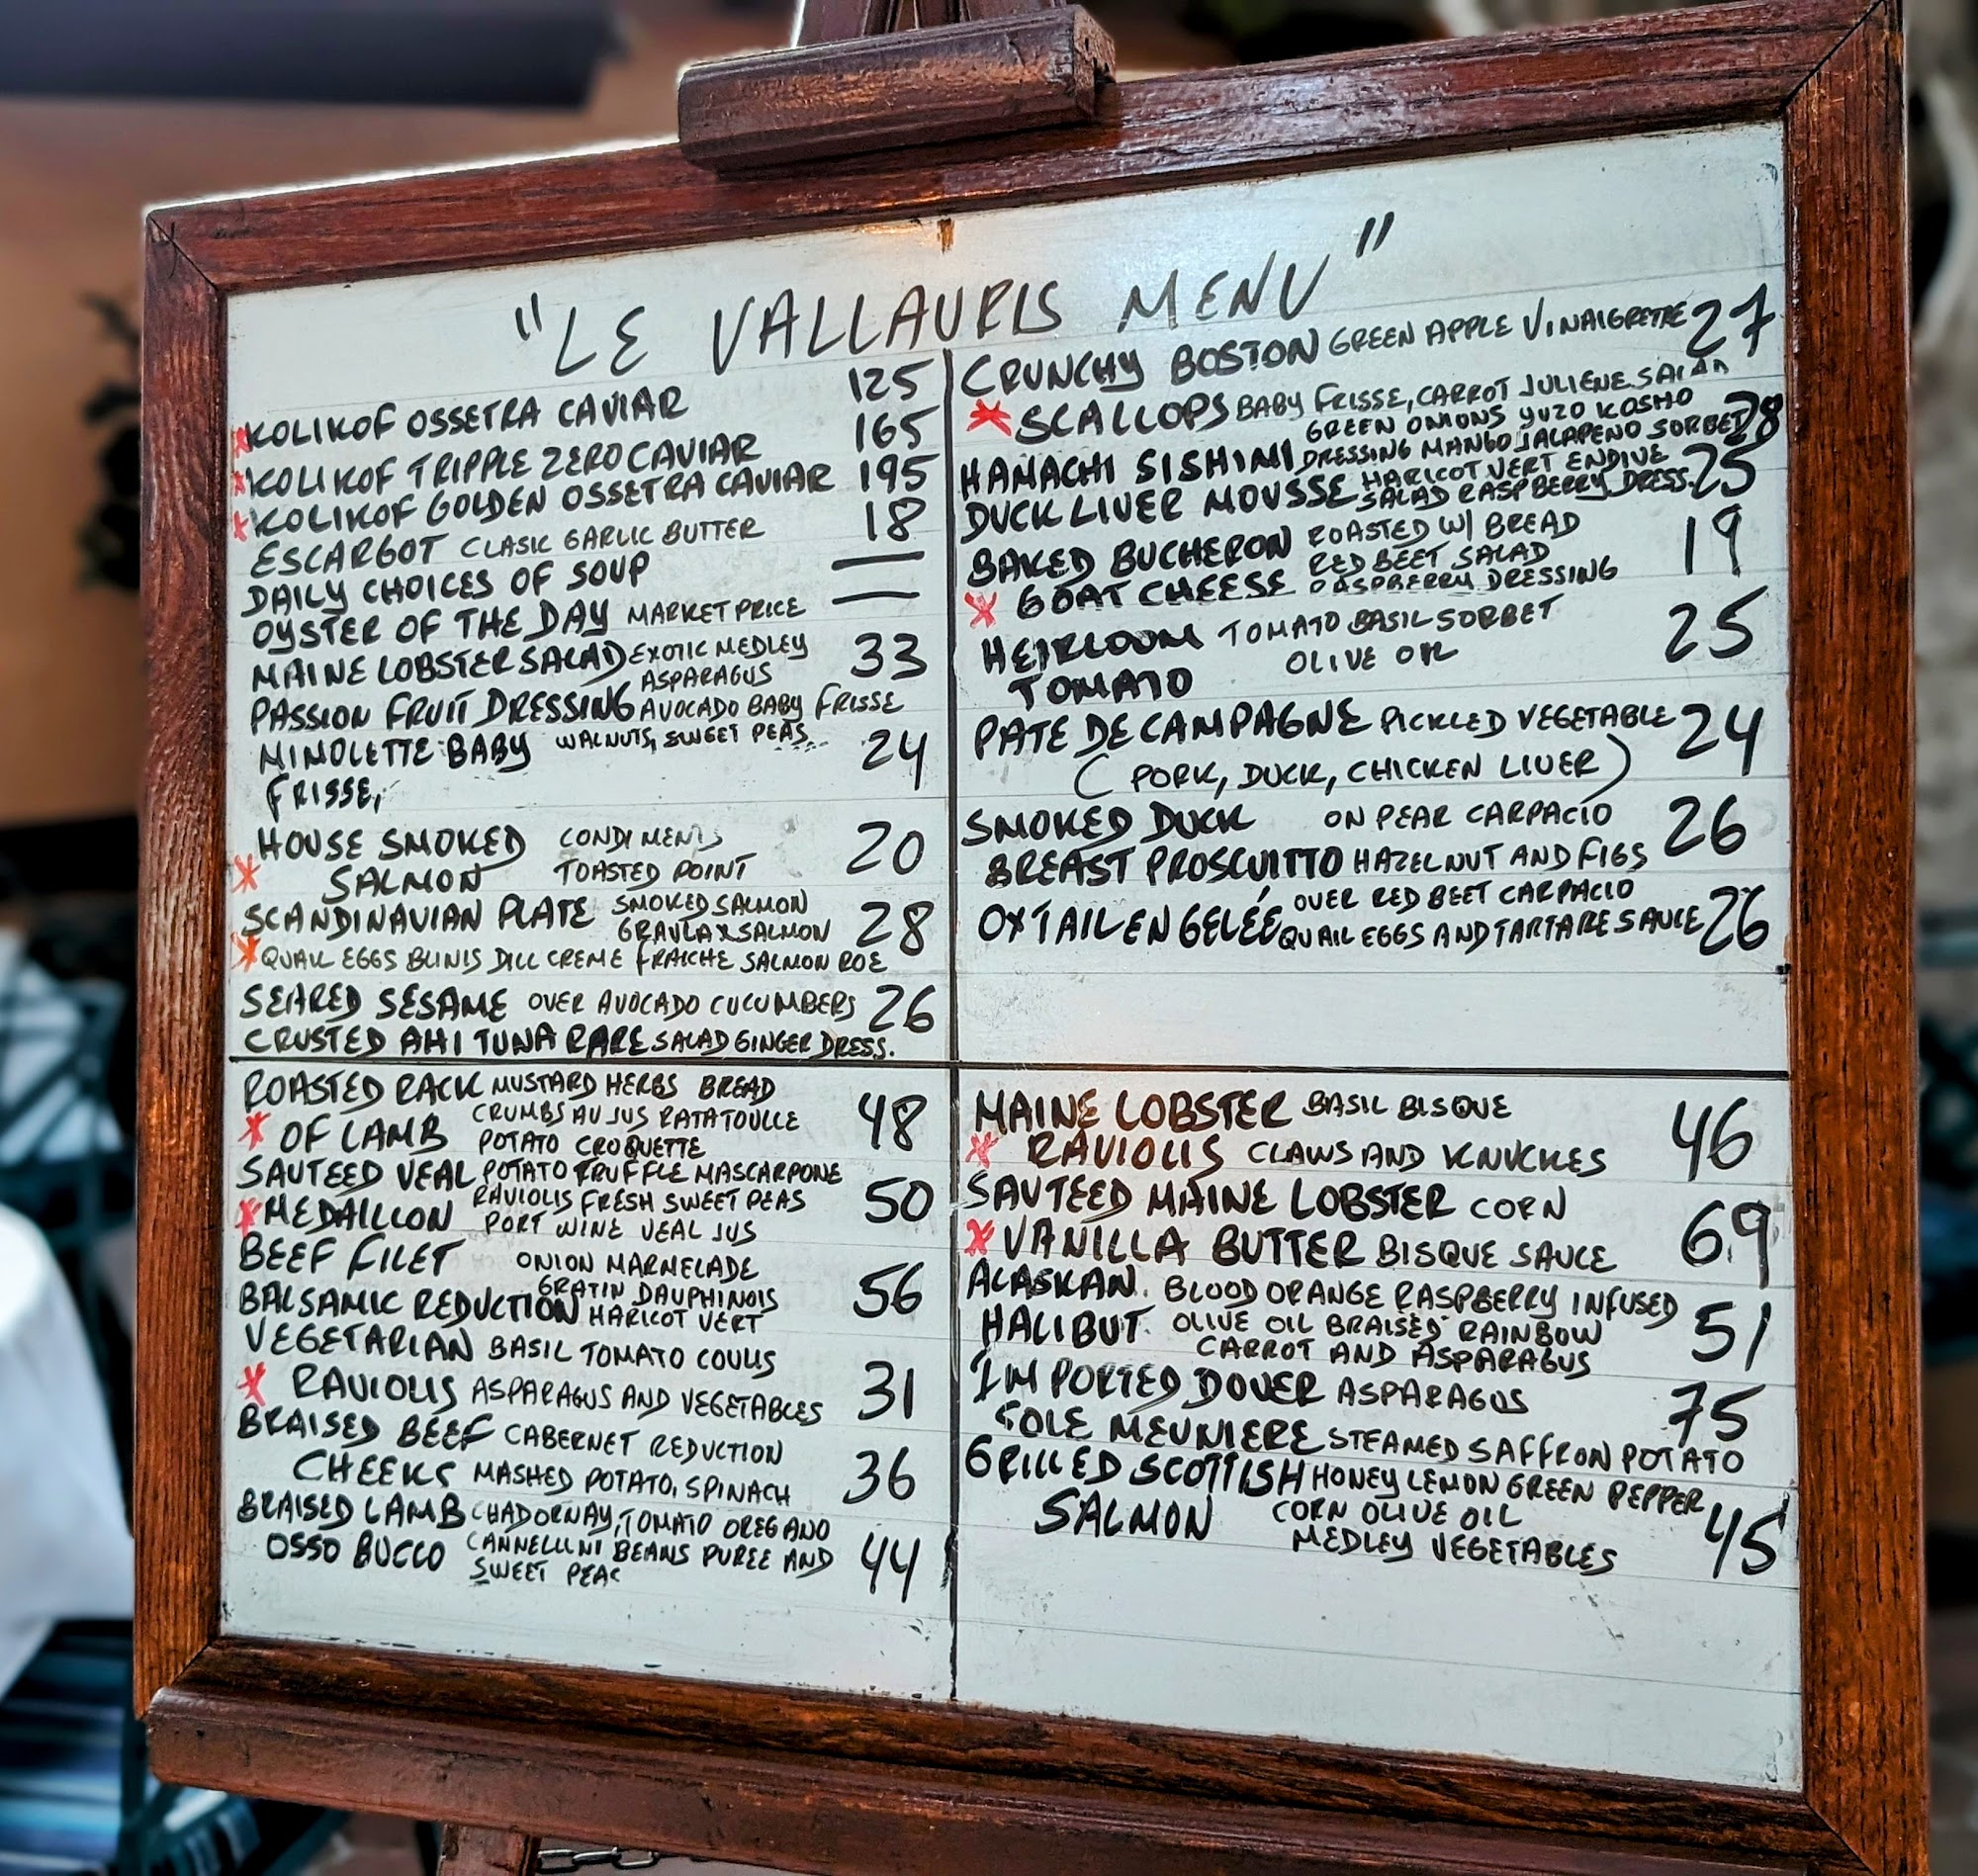 "LE VALLAURIS MENU"
KOLIKOF OSSETRA CAVIAR 125
KOLIKOF TRIPPLE ZERO CAVIAR 165
KOLIKOF GOLDEN OSSETRA CAVIAR 195
ESCARGOT CLASIC GARLIC BUTTER 18
DAILY CHOICES OF SOUP —
OYSTER OF THE DAY MARKET PRICE —
MAINE LOBSTER SALAD EXOTIC MEDLEY 33
ASPARAGUS
PASSION FRUIT DRESSING AVOCADO BABY FRISSE
MIMOLETTE BABY WALNUTS, SWEET PEAS 24
FRISSE,
HOUSE SMOKED CONDIMENTS 20
SALMON TOASTED POINT
SCANDINAVIAN PLATE SMOKED SALMON 28
GRAVLAX SALMON
QUAIL EGGS BLINIS DILL CREME FRAICHE SALMON ROE
SEARED SESAME OVER AVOCADO CUCUMBERS 26
CRUSTED AHI TUNA RARE SALAD GINGER DRESS.
CRUNCHY BOSTON GREEN APPLE VINAIGRETTE 27
SCALLOPS BABY FRISSE, CARROT JULIENE SALAD
GREEN ONIONS YUZO KOSHO
HAMACHI SISHIMI DRESSING MANGO JALAPENO SORBET 28
DUCK LIVER MOUSSE HARICOT VERT ENDIVE 25
SALAD RASPBERRY DRESS.
BAKED BUCHERON ROASTED W/ BREAD 19
RED BEET SALAD
GOAT CHEESE RASPBERRY DRESSING
HEIRLOOM TOMATO BASIL SORBET 25
TOMATO OLIVE OIL
PATE DE CAMPAGNE PICKLED VEGETABLE 24
(PORK, DUCK, CHICKEN LIVER)
SMOKED DUCK ON PEAR CARPACIO 26
BREAST PROSCUITTO HAZELNUT AND FIGS
OVER RED BEET CARPACIO
OXTAIL EN GELÉE QUAIL EGGS AND TARTARE SAUCE 26
ROASTED RACK MUSTARD HERBS BREAD 48
OF LAMB CRUMBS AU JUS RATATOULLE
POTATO CROQUETTE
SAUTEED VEAL POTATO TRUFFLE MASCARPONE 50
MEDAILLON RAVIOLIS FRESH SWEET PEAS
PORT WINE VEAL JUS
BEEF FILET ONION MARMELADE 56
GRATIN DAUPHINOIS
BALSAMIC REDUCTION HARICOT VERT
VEGETARIAN BASIL TOMATO COULIS 31
RAVIOLIS ASPARAGUS AND VEGETABLES
BRAISED BEEF CABERNET REDUCTION 36
CHEEKS MASHED POTATO, SPINACH
BRAISED LAMB CHADORNAY, TOMATO OREGANO 44
OSSO BUCCO CANNELLINI BEANS PUREE AND
SWEET PEAS
MAINE LOBSTER BASIL BISQUE 46
RAVIOLIS CLAWS AND KNUCKLES
SAUTEED MAINE LOBSTER CORN 69
VANILLA BUTTER BISQUE SAUCE
ALASKAN BLOOD ORANGE RASPBERRY INFUSED 51
HALIBUT OLIVE OIL BRAISED RAINBOW
CARROT AND ASPARAGUS
IMPORTED DOVER ASPARAGUS 75
SOLE MEUNIERE STEAMED SAFFRON POTATO
GRILLED SCOTTISH HONEY LEMON GREEN PEPPER 45
SALMON CORN OLIVE OIL
MEDLEY VEGETABLES